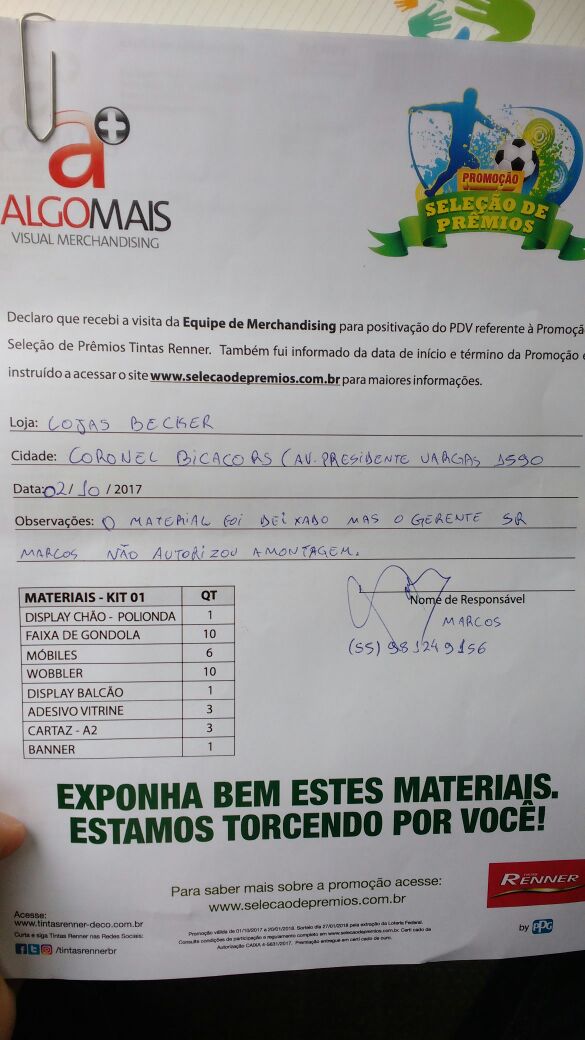 a+
ALGOMAIS
VISUAL MERCHANDISING
PROMOÇÃO
SELEÇÃO DE
PRÊMIOS
Declaro que recebi a visita da Equipe de Merchandising para positivação do PDV referente à Promoçã
Seleção de Prêmios Tintas Renner. Também fui informado da data de início e término da Promoção e
instruído a acessar o site www.selecaodepremios.com.br para maiores informações.
Loja: LOJAS BECKER
Cidade: CORONEL BICACO RS (AV. PRESIDENTE VARGAS 1590
Data: 02/10/2017
Observações: O MATERIAL FOI DEIXADO MAS O GERENTE SR
MARCOS NÃO AUTORIZOU A MONTAGEM.
MATERIAIS - KIT 01 QT
DISPLAY CHÃO - POLIONDA 1
FAIXA DE GONDOLA 10
MÓBILES 6
WOBBLER 10
DISPLAY BALCÃO 1
ADESIVO VITRINE 3
CARTAZ - A2 3
BANNER 1
Nome de Responsável
MARCOS
(55) 981249156
EXPONHA BEM ESTES MATERIAIS.
ESTAMOS TORCENDO POR VOCÊ!
Para saber mais sobre a promoção acesse:
www.selecaodepremios.com.br
RENNER
by PPG
Acesse:
www.tintasrenner-deco.com.br
Curta e siga Tintas Renner nas Redes Sociais:
/tintasrennerbr
Promoção válida de 01/10/2017 a 20/01/2018. Sorteio dia 27/01/2018 para extração da Loteria Federal.
Consulte condições de participação e regulamento completo em www.selecaodepremios.com.br. Certi cado de
Autorização CAIXA 4-5631/2017. Premiação entregue em certi cado de ouro.